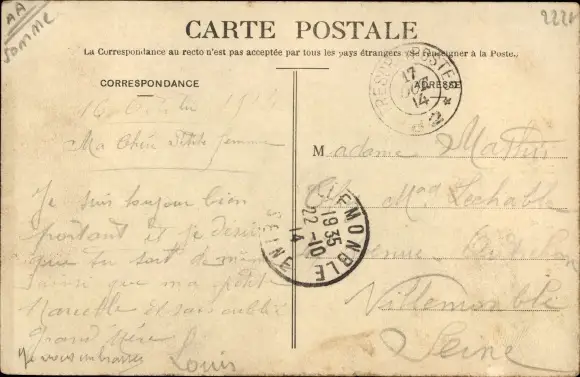 AA
SOMME
2221
CARTE POSTALE
La Correspondance au recto n'est pas acceptée par tous les pays étrangers (Se renseigner à la Poste.)
CORRESPONDANCE
ADRESSE
TRESOR POSTES
17
OCT
14
16 1914
Ma Chère Petite femme
Je suis toujour bien
portant et je désire
que tu soit de même
ainsi que ma petite
Marcelle et sans oublié
Grand Mère
Je vous embrasse
Louis
VILLEMONBLE
19 35
22-10
14
SEINE
Madame Mathis
Mad Lechable
Avenue
Villemonble
Seine